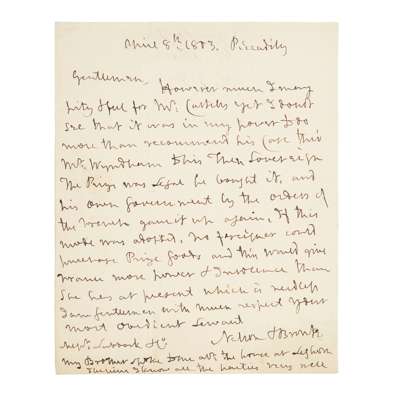 April 8th: 1803. Piccadilly
Gentlemen,
However much I may
pity & feel for Mr. yet I do not
see that it was in my power to do
more than recommend his Case thro'
Mr. Wyndham to his Then Sovereign
The Prize was Legal he bought it, and
his own Government by the orders of
the French gave it up again, If this
mode was adopted, no foreigner could
purchase Prize Goods and this would give
France more power & Insolence than
She has at present which is needless
I am Gentlemen with much respect your
most obedient Servant
Nelson & Bronte
my Brother spoke to me abt. the house at Leghorn
I know all the parties very well